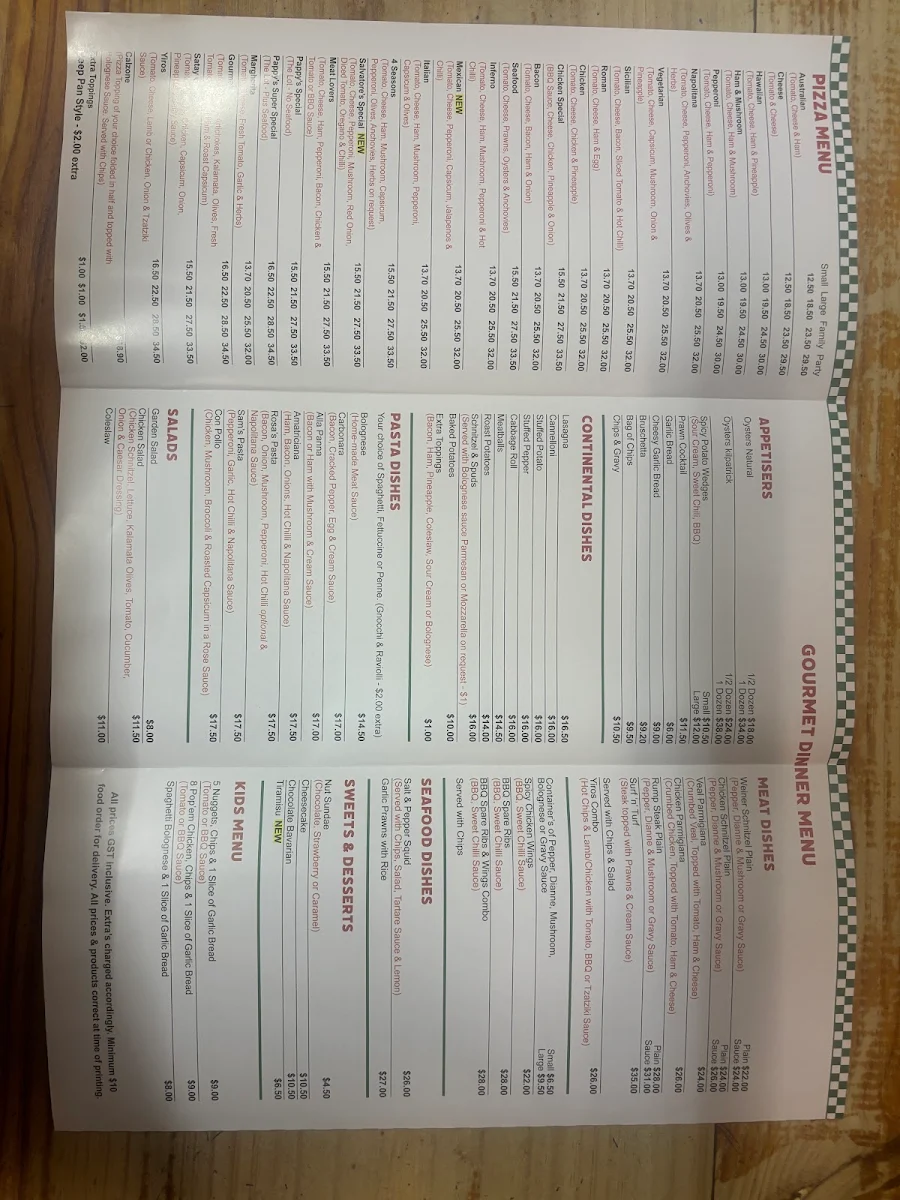 PIZZA MENU
Small Large Family Party
Australian 12.50 18.50 23.50 29.50
(Tomato, Cheese & Ham)
Cheese 12.50 18.50 23.50 29.50
(Tomato & Cheese)
Hawaiian 13.00 19.50 24.50 30.00
(Tomato, Cheese, Ham & Pineapple)
Ham & Mushroom 13.00 19.50 24.50 30.00
(Tomato, Cheese, Ham & Mushroom)
Pepperoni 13.00 19.50 24.50 30.00
(Tomato, Cheese, Ham & Pepperoni)
Napolitana 13.70 20.50 25.50 32.00
(Tomato, Cheese, Pepperoni, Anchovies, Olives &
Herbs)
Vegetarian 13.70 20.50 25.50 32.00
(Tomato, Cheese, Capsicum, Mushroom, Onion &
Pineapple)
Sicilian 13.70 20.50 25.50 32.00
(Tomato, Cheese, Bacon, Sliced Tomato & Hot Chilli)
Roman 13.70 20.50 25.50 32.00
(Tomato, Cheese, Ham & Egg)
Chicken 13.70 20.50 25.50 32.00
(Tomato, Cheese, Chicken & Pineapple)
Chicken Special 15.50 21.50 27.50 33.50
(BBQ Sauce, Cheese, Chicken, Pineapple & Onion)
Bacon 13.70 20.50 25.50 32.00
(Tomato, Cheese, Bacon, Ham & Onion)
Seafood 15.50 21.50 27.50 33.50
(Tomato, Cheese, Prawns, Oysters & Anchovies)
Inferno 13.70 20.50 25.50 32.00
(Tomato, Cheese, Ham, Mushroom, Pepperoni & Hot
Chilli)
Mexican NEW 13.70 20.50 25.50 32.00
(Tomato, Cheese, Pepperoni, Capsicum, Jalapenos &
Chilli)
Italian 13.70 20.50 25.50 32.00
(Tomato, Cheese, Ham, Mushroom, Pepperoni,
Capsicum & Olives)
4 Seasons 15.50 21.50 27.50 33.50
(Tomato, Cheese, Ham, Mushroom, Capsicum,
Pepperoni, Olives, Anchovies, Herbs on request)
Salvatore's Special NEW 15.50 21.50 27.50 33.50
(Tomato, Cheese, Pepperoni, Mushroom, Red Onion,
Diced Tomato, Oregano & Chilli)
Meat Lovers 15.50 21.50 27.50 33.50
(Tomato, Cheese, Ham, Pepperoni, Bacon, Chicken &
Tomato or BBQ Sauce)
Pappy's Special 15.50 21.50 27.50 33.50
(The Lot, No Seafood)
Pappy's Super Special 16.50 22.50 28.50 34.50
(The Seafood)
13.70 20.50 25.50 32.00
Fresh Tomato, Garlic & Herbs)
Gourm 16.50 22.50 28.50 34.50
Kalamata, Olives, Fresh
Roast Capsicum)
Satay 15.50 21.50 27.50 33.50
Capsicum, Onion,
Yiros 16.50 22.50 28.50 34.50
(Tomato, Cheese, Lamb or Chicken, Onion & Tzatziki
Sauce)
Calzone 8.90
(Pizza Topping of your choice folded in half and topped with
Bolognese Sauce, Served with Chips)
xtra Toppings $1.00 $1.00 2.00
eep Pan Style - $2.00 extra
GOURMET DINNER MENU
APPETISERS
Oysters Natural 1/2 Dozen $18.00
1 Dozen $34.00
Oysters kilpatrick 1/2 Dozen $24.00
1 Dozen $38.00
Spicy Potato Wedges Small $10.50
(Sour Cream, Sweet Chili, BBQ) Large $12.00
Prawn Cocktail $11.50
Garlic Bread $6.00
Cheesy Garlic Bread $9.00
Bruschetta $9.20
Bag of Chips $9.50
Chips & Gravy $10.50
CONTINENTAL DISHES
Lasagna $16.50
Cannelloni $16.00
Stuffed Potato $16.00
Stuffed Pepper $16.00
Cabbage Roll $16.00
Meatballs $14.50
Roast Potatoes $14.00
Schnitzel & Spuds $16.00
(Served with Bolognese sauce Parmesan or Mozzarella on request - $1)
Baked Potatoes $10.00
Extra Toppings $1.00
(Bacon, Ham, Pineapple, Coleslaw, Sour Cream or Bolognese)
PASTA DISHES
Your choice of Spaghetti, Fettuccine or Penne. (Gnocchi & Raviolli - $2.00 extra)
Bolognese $14.50
(Home-made Meat Sauce)
Carbonara $17.00
(Bacon, Cracked Pepper, Egg & Cream Sauce)
Alla Panna $17.00
(Bacon or Ham with Mushroom & Cream Sauce)
Amatriciana $17.50
(Ham, Bacon, Onions, Hot Chilli & Napolitana Sauce)
Rosa's Pasta $17.50
(Bacon, Onion, Mushroom, Pepperoni, Hot Chilli optional &
Napolitana Sauce)
Sam's Pasta $17.50
(Pepperoni, Garlic, Hot Chilli & Napolitana Sauce)
Con Pollo $17.50
(Chicken, Mushroom, Broccoli & Roasted Capsicum in a Rose Sauce)
SALADS
Garden Salad $8.00
Chicken Salad $11.50
(Chicken Schnitzel, Lettuce, Kalamata Olives, Tomato, Cucumber,
Onion & Caesar Dressing)
Coleslaw $11.00
MEAT DISHES
Weiner Schnitzel Plain Plain $22.00
(Pepper, Dianne & Mushroom or Gravy Sauce) Sauce $24.00
Chicken Schnitzel Plain Plain $24.00
(Pepper, Dianne & Mushroom or Gravy Sauce) Sauce $26.00
Veal Parmigiana $24.00
(Crumbed Veal, Topped with Tomato, Ham & Cheese)
Chicken Parmigiana $26.00
(Crumbed Chicken, Topped with Tomato, Ham & Cheese)
Rump Steak Plain Plain $28.00
(Pepper, Dianne & Mushroom or Gravy Sauce) Sauce $31.00
Surf 'n' Turf $35.00
(Steak topped with Prawns & Cream Sauce)
Served with Chips & Salad
Yiros Combo $26.00
(Hot Chips & Lamb/Chicken with Tomato, BBQ or Tzatziki Sauce)
Container's of Pepper, Dianne, Mushroom, Small $6.50
Bolognese or Gravy Sauce Large $9.50
Spicy Chicken Wings $22.00
(BBQ, Sweet Chilli Sauce)
BBQ Spare Ribs $28.00
(BBQ, Sweet Chilli Sauce)
BBQ Spare Ribs & Wings Combo $28.00
(BBQ, Sweet Chilli Sauce)
Served with Chips
SEAFOOD DISHES
Salt & Pepper Squid $26.00
(Served with Chips, Salad, Tartare Sauce & Lemon)
Garlic Prawns with Rice $27.00
SWEETS & DESSERTS
Nut Sundae $4.50
(Chocolate, Strawberry or Caramel)
Cheesecake $10.50
Chocolate Bavarian $10.50
Tiramisu NEW $6.50
KIDS MENU
5 Nuggets, Chips & 1 Slice of Garlic Bread $9.00
(Tomato or BBQ Sauce)
8 Pop corn Chicken, Chips & 1 Slice of Garlic Bread $9.00
(Tomato or BBQ Sauce)
Spaghetti Bolognese & 1 Slice of Garlic Bread $8.00
All prices GST inclusive. Extra's charged accordingly. Minimum $10
food order for delivery. All prices & products correct at time of printing.